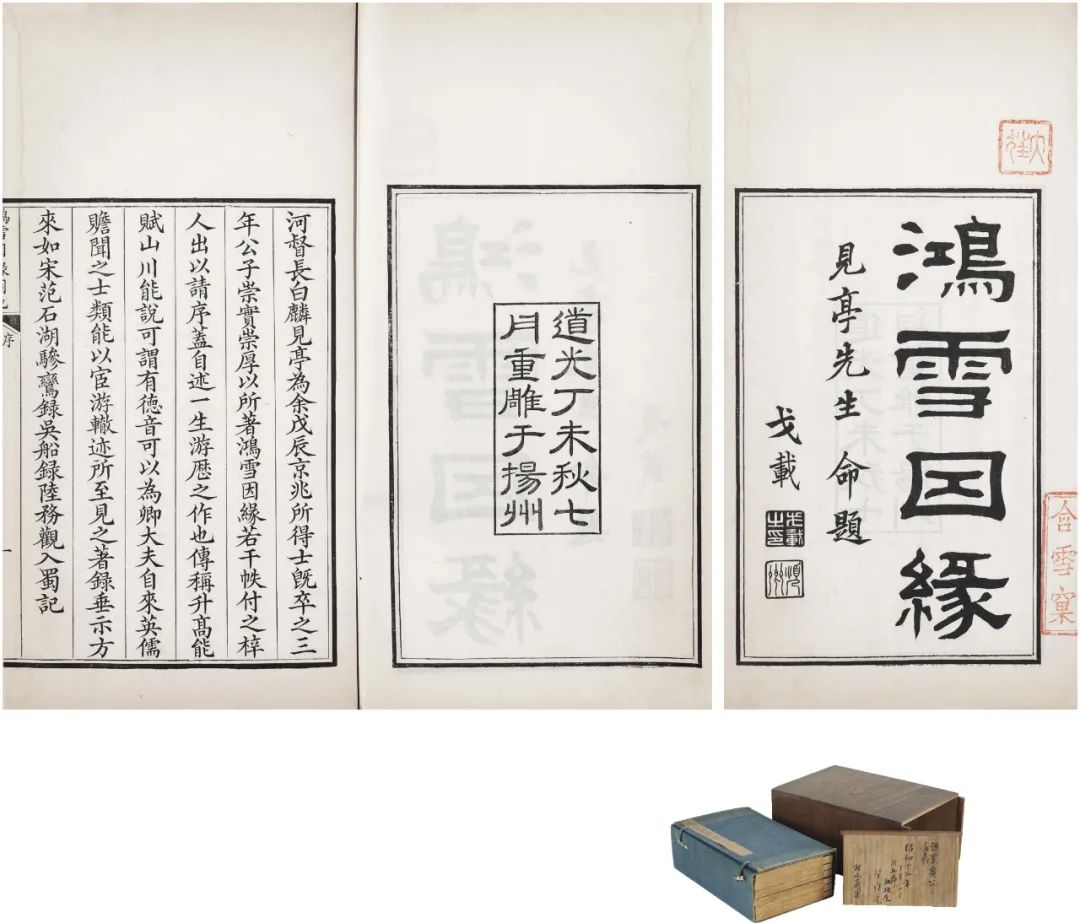 鴻雪因緣
見亭先生命題
戈載
道光丁未秋七
月重雕于揚州
河督長白麟見亭為余戊辰京兆所得士既卒之三
年公子崇實崇厚以所著鴻雪因緣若干帙付之梓
人出以請序蓋自述一生游歷之作也傳稱升高能
賦山川能說可謂有德音可以為卿大夫自來英儒
贍聞之士類能以宦游轍迹所至見之著錄垂示方
來如宋范石湖驂鸞録吳船録陸務觀入蜀記
序
一